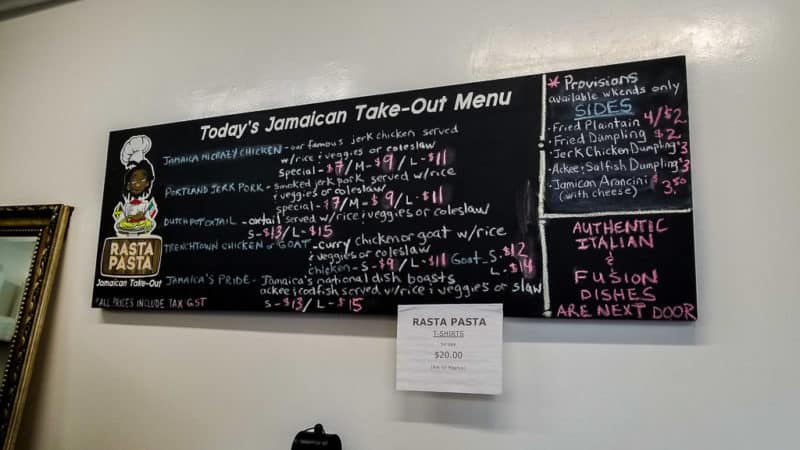 Today's Jamaican Take-Out Menu
JAMAICA MICRAZY CHICKEN - our famous jerk chicken served
w/rice & veggies or coleslaw
Special - $7/M - $9/L - $11
PORTLAND JERK PORK - Smoked jerk pork served w/rice
& veggies or coleslaw
special - $7/M - $9/L - $11
DUTCH POT OXTAIL - oxtail served w/rice & veggies or coleslaw
S - $13/L - $15
TRENCHTOWN CHICKEN or GOAT - curry chicken or goat w/rice
& veggies or coleslaw
chicken - S - $9/L - $11 Goat - S. $12
L - $14
JAMAICA'S PRIDE - Jamaica's national dish boasts
ackee & codfish served w/rice & veggies or slaw
S - $13/L - $15
RASTA
PASTA
Jamaican Take-Out
*ALL PRICES INCLUDE TAX GST
* Provisions
available wkends only
SIDES
- Fried Plaintain 4/$2
- Fried Dumpling $2
- Jerk Chicken Dumpling $3
- Ackee & Salfish Dumpling $3
- Jamican Arancini $3.50
(with cheese)
AUTHENTIC
ITALIAN
&
FUSION
DISHES
ARE NEXT DOOR
RASTA PASTA
T-SHIRTS
$20.00